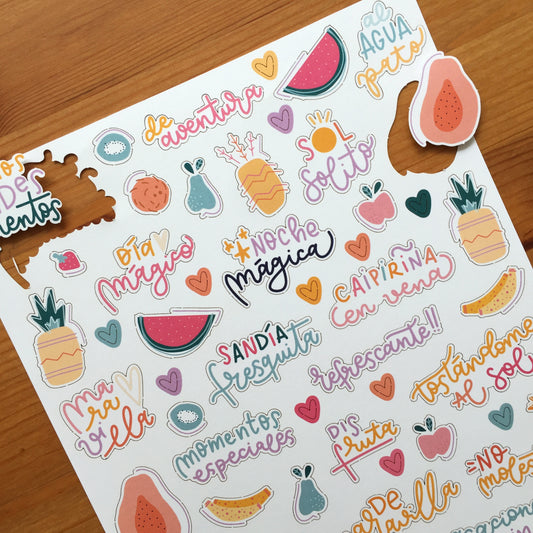 al
AGUA
pato
de
aventura
SOL
solito
mentos
DÍA
mágico
NOCHE
mágica
CAIPIRIÑA
en vena
SANDÍA
fresquita
refrescante!!
tostándome
AL SOL
ma
ra
vi
lla
momentos
especiales
DIS
fruta
NO
moles